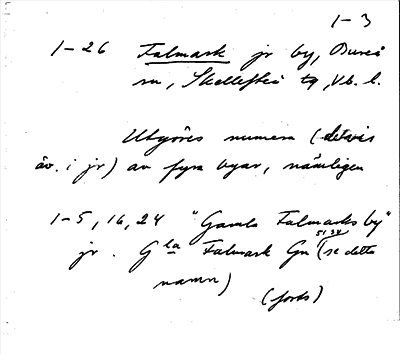 1-3
1-26 Falmark jr by, Bureå
sn, Skellefteå tg, Vb. l.
Utgöres numera (delvis
äv. i jr) av fyra byar, nämligen
1-5, 16, 24 "Gamla Falmarks by"
jr. Gla Falmark Gn (se detta
namn)
(forts)